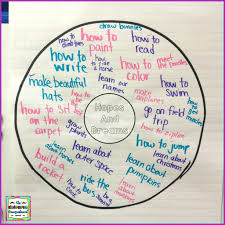 draw bunnies
how to
paint
how to
read
how to
write
how to
ride
a horse
how to
color
how to
swim
make beautiful
hats
learn our
names
make
airplanes
Hopes
And
Dreams
how to sit
on
the carpet
go on field
trip
how to explore
how to jump
learn about
outer space
learn about
Christmas
learn about
pumpkins
build a
rocket
ride the
bus
how to
cook